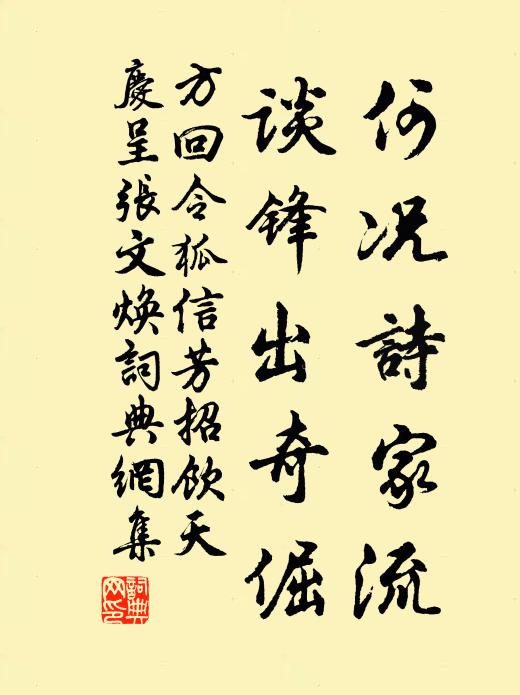 何况詩家流
談鋒出奇倔
方回令狐信芳招飲天
慶呈張文焕詞典網集
詞典網印